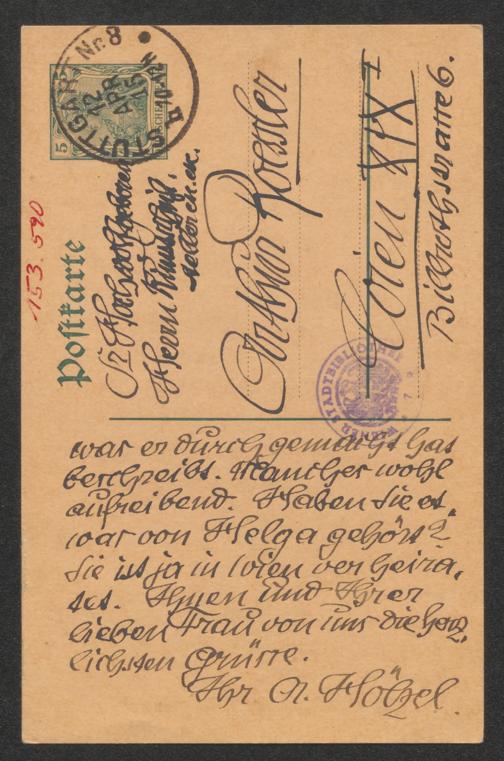 STUTTGART Nr. 8
12 APR 15
10-11 N
5
153.590
Postkarte
Sr Hochwohlgeboren
Herrn Kunstschrift-
steller etc. etc.
Arthur Roessler
Wien XIX I
Billrothstrasse 6.
WIENER STADTBIBLIOTHEK
was er durchgemacht hat
beschreibt. Mancher wohl
aufreibend. Haben Sie et-
was von Helga gehört?
Sie ist ja in Wien verheira-
tet. Ihnen und Ihrer
lieben Frau von uns die herz-
lichsten Grüsse.
Ihr A. Hölzel.